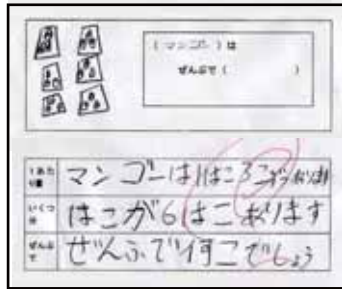 (マンゴー)は
ぜんぶで(　　)
1あたり量 マンゴーは1はこ3こずつあります
いくつ分 はこが6はこあります
ぜんぶで ぜんぶで何こでしょう